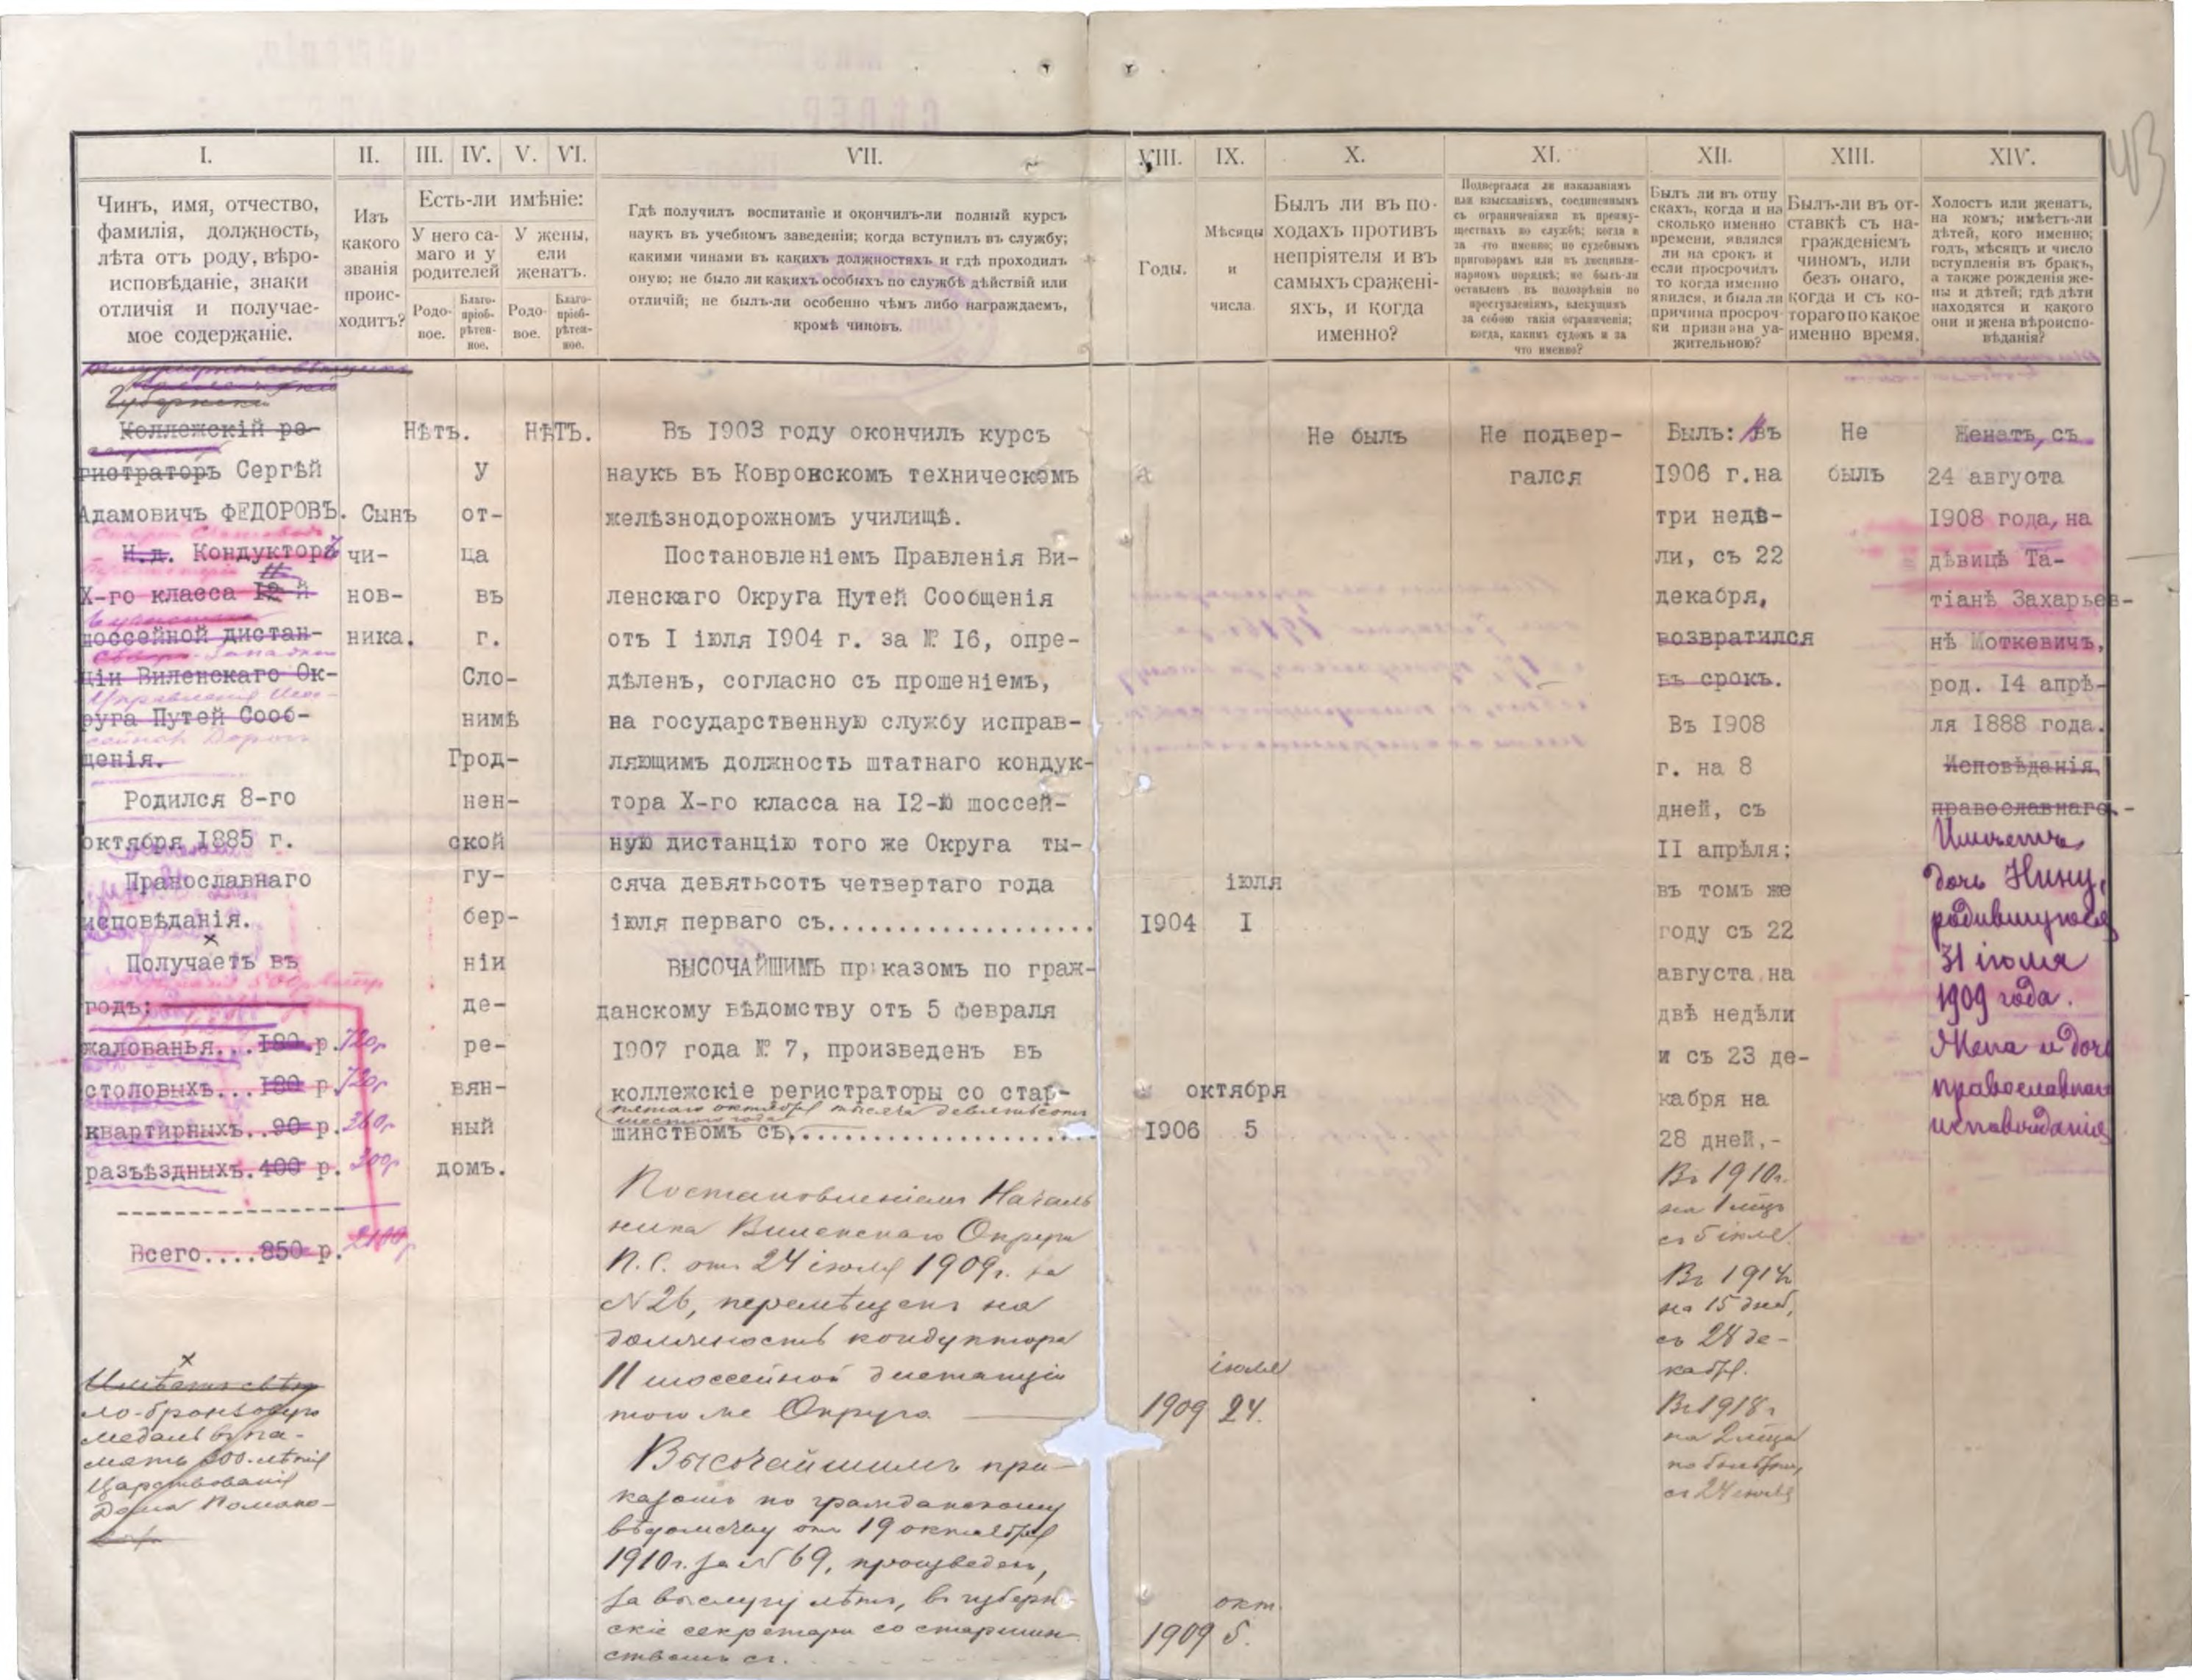 I.
II.
III.
IV.
V.
VI.
VII.
VIII.
IX.
X.
XI.
XII.
XIII.
XIV.
Чинъ, имя, отчество,
фамилія, должность,
лѣта отъ роду, вѣро-
исповѣданіе, знаки
отличія и получае-
мое содержаніе.
Изъ
какого
званія
проис-
ходитъ?
Есть-ли имѣніе:
У него са-
маго и у
родителей
У жены,
ели
женатъ.
Родо-
вое.
Благо-
пріоб-
рѣтен-
ное.
Родо-
вое.
Благо-
пріоб-
рѣтен-
ное.
Гдѣ получилъ воспитаніе и окончилъ-ли полный курсъ
наукъ въ учебномъ заведеніи; когда вступилъ въ службу;
какими чинами въ какихъ должностяхъ и гдѣ проходилъ
оную; не было ли какихъ особыхъ по службѣ дѣйствій или
отличій; не былъ-ли особенно чѣмъ либо награждаемъ,
кромѣ чиновъ.
Годы.
Мѣсяцы
и
числа
Былъ ли въ по-
ходахъ противъ
непріятеля и въ
самыхъ сражені-
яхъ, и когда
именно?
Подвергался ли наказаніямъ
или взысканіямъ, соединеннымъ
съ ограниченіями въ преиму-
ществахъ по службѣ; когда и
за что именно; по судебнымъ
приговорамъ или въ дисципли-
нарномъ порядкѣ; не былъ-ли
оставленъ въ подозрѣніи по
преступленіямъ, влекущимъ
за собою такія ограниченія;
когда, какимъ судомъ и за
что именно?
Былъ ли въ отпу
скахъ, когда и на
сколько именно
времени, являлся
ли на срокъ и
если просрочилъ
то когда именно
явился, и была ли
причина просроч-
ки признана ува-
жительною?
Былъ-ли въ от-
ставкѣ съ на-
гражденіемъ
чиномъ, или
безъ онаго,
когда и съ ко-
тораго по какое
именно время.
Холостъ или женатъ,
на комъ; имѣетъ-ли
дѣтей, кого именно;
годъ, мѣсяцъ и число
вступленія въ бракъ,
а также рожденія же-
ны и дѣтей; гдѣ дѣти
находятся и какого
они и жена вѣроиспо-
вѣданія?
Губернскій
Коллежскій ре-
секретарь
гистраторъ Сергѣй
Адамовичъ ФЕДОРОВЪ.
И.д. Кондуктора
X-го класса 12-й
II
шоссейной дистан-
ціи Виленскаго Ок-
руга Путей Сооб-
щенія.
Родился 8-го
октября 1885 г.
Православнаго
исповѣданія.
Получаетъ въ
годъ:
жалованья...180 р. 720р
столовыхъ...180 р. 720р
квартирныхъ..90 р. 260р
разъѣздныхъ.400 р. 300р
Всего....850 р. 2100р
Имѣетъ свѣт
ло-бронзовую
медаль въ па-
мять 300-лѣтія
Царствованія
Дома Романо-
Сынъ
чи-
нов-
ника.
Нѣтъ.
У
от-
ца
въ
г.
Сло-
нимѣ
Грод-
нен-
ской
гу-
бер-
ніи
де-
ре-
вян-
ный
домъ.
НѢТЪ.
Въ 1903 году окончилъ курсъ
наукъ въ Ковровскомъ техническомъ
желѣзнодорожномъ училищѣ.
Постановленіемъ Правленія Ви-
ленскаго Округа Путей Сообщенія
отъ I іюля 1904 г. за № 16, опре-
дѣленъ, согласно съ прошеніемъ,
на государственную службу исправ-
ляющимъ должность штатнаго кондук-
тора X-го класса на 12-ю шоссей-
ную дистанцію того же Округа ты-
сяча девятьсотъ четвертаго года
іюля перваго съ...................
ВЫСОЧАЙШИМЪ приказомъ по граж-
данскому вѣдомству отъ 5 февраля
1907 года № 7, произведенъ въ
коллежскіе регистраторы со стар-
пятаго октября тысяча девятьсотъ
шестого года
шинствомъ съ......................
Постановленіемъ Началь
ника Виленскаго Округа
П.С. отъ 24 іюля 1909г. за
№26, перемѣщенъ на
должность кондуктора
11 шоссейной дистанціи
того же Округа
Высочайшимъ при-
казомъ по гражданскому
вѣдомству отъ 19 октября
1910г. за №69, произведенъ,
за выслугу лѣтъ, въ губерн-
скіе секретари со старшин-
ствомъ съ.
іюля
1904 I
октября
1906 5
іюля
1909 24.
окт.
1909 5.
Не былъ
Не подвер-
гался
Былъ: Въ
1906 г.на
три недѣ-
ли, съ 22
декабря,
возвратился
въ срокъ.
Въ 1908
г. на 8
дней, съ
II апрѣля;
въ томъ же
году съ 22
августа на
двѣ недѣли
и съ 23 де-
кабря на
28 дней,-
Въ 1910г.
на 1 мѣц
съ 5 іюля.
Въ 1914г.
на 15 дней,
съ 28 де-
кабря.
Въ 1918г
на 2 мѣца
по болѣзни,
съ 24 іюля
Не
былъ
Женатъ, съ
24 августа
1908 года, на
дѣвицѣ Та-
тіанѣ Захарьев-
нѣ Моткевичъ,
род. I4 апрѣ-
ля 1888 года.
Исповѣданія
православнаго.-
Имѣетъ
дочь Нину,
родившуюся
31 іюля
1909 года.
Жена и дочь
православнаго
исповѣданія